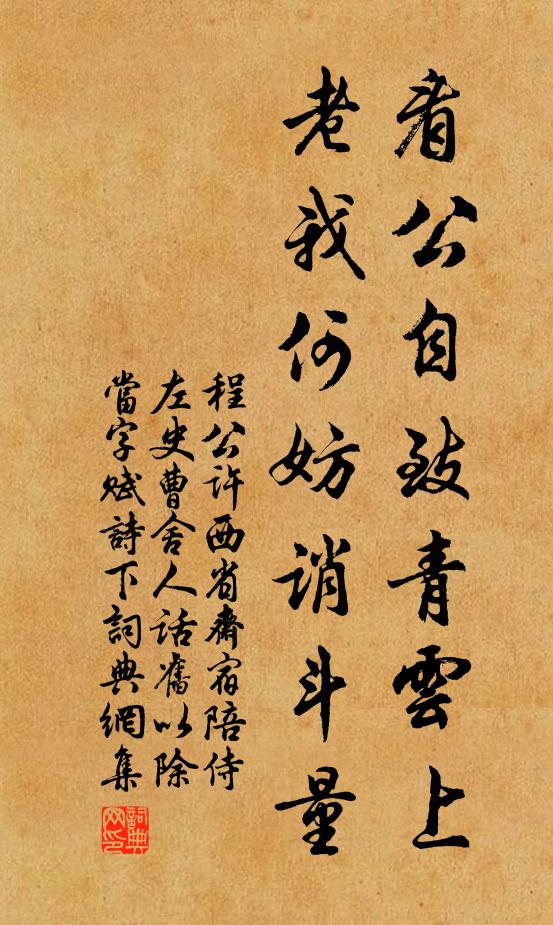 看公自致青雲上
老我何妨誚斗量
程公許西省齋宿陪侍
左史曹舍人話舊以除
當字賦詩下詞典網集
詞典網印